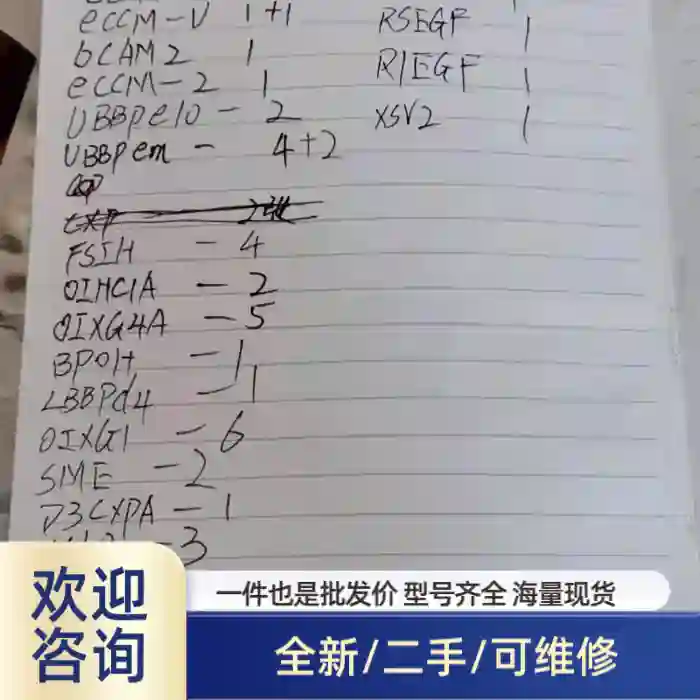 eCCM-U 1+1
bCAM2 1
eCCM-2 1
UBBPe10 - 2
UBBPem - 4+2
FSIH - 4
OIHC1A - 2
OIXG4A - 5
BPOH - 1
LBBPd4 - 1
OIXG1 - 6
SME - 2
D3CXPA - 1
- 3
RSEGF 1
R1EGF 1
XSV2 1
欢迎咨询
一件也是批发价 型号齐全 海量现货
全新/二手/可维修